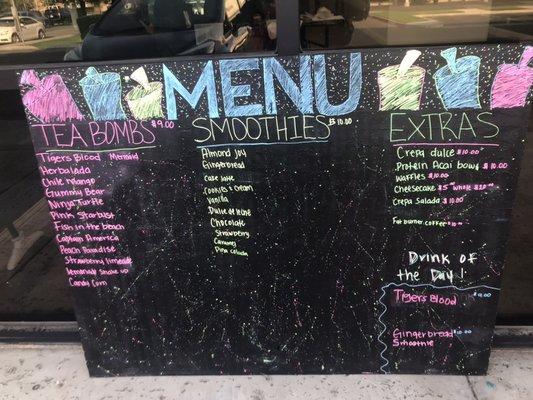 MENU
TEA BOMBS $9.00
Tigers Blood Mermaid
Herbalada
Chile mango
Gummy Bear
Ninja Turtle
Pink Starburst
Fish in the beach
Captain America
Peach Paradise
Strawberry limeade
Lemonade shake up
Candy Corn
SMOOTHIES $10.00
Almond Joy
Gingerbread
Cafe Latte
Cookies & Cream
Vanilla
Dulce de leche
Chocolate
Strawberry
Caramel
Pina colada
EXTRAS
Crepa dulce $10.00
Protein Acai bowl $10.00
Waffles $10.00
Cheesecake $5 whole
Crepa Salada $10.00
Fat burner coffee
Drink of
the Day!
Tigers Blood $9.00
Gingerbread $10.00
Smoothie